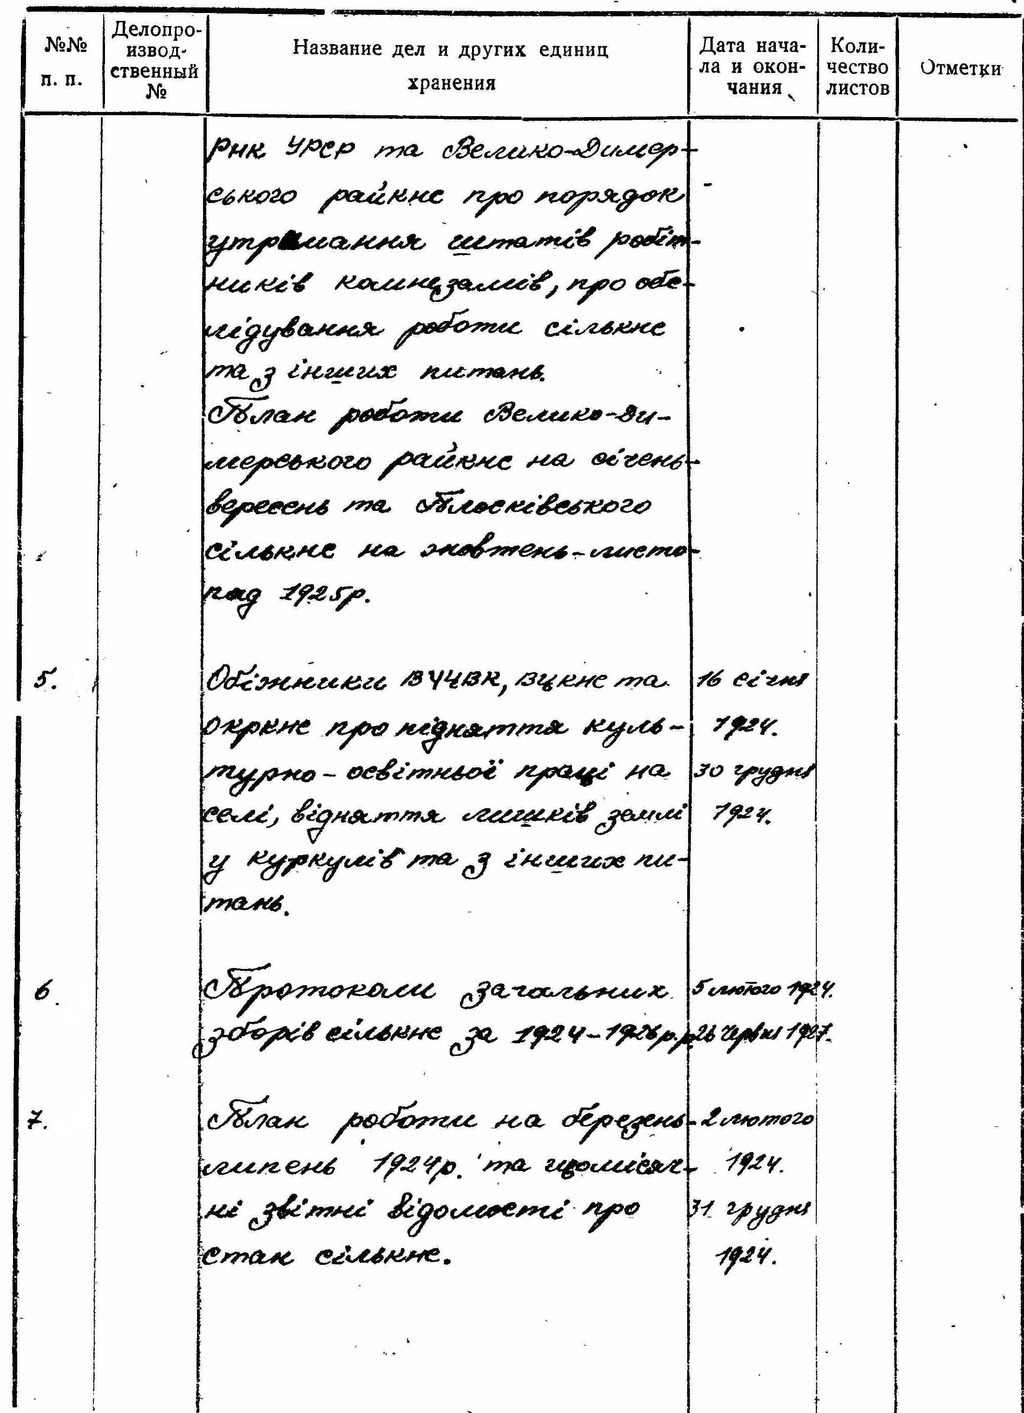 №№ п. п.
Делопро-
извод-
ственный
№
Название дел и других единиц
хранения
Дата нача-
ла и окон-
чания
Коли-
чество
листов
Отметки
РНК УРСР та Велико-Димер-
ського райкнс про порядок
утримання штатів робіт-
ників комнезамів, про обс-
лідування роботи сількнс
та з інших питань.
План роботи Велико-Ди-
мерського райкнс на січень-
вересень та Плосківського
сількнс на жовтень-листо-
пад 1925р.
5. Обіжники ВУЦВК, ВЦКНС та 16 січня
Окркнс про підняття куль- 1924.
турно-освітньої праці на 30 грудня
селі, відняття лишків землі 1924.
у куркулів та з інших пи-
тань.
6. Протоколи загальних 5 лютого 1924.
зборів сількнс за 1924-1926р.р. 26 червня 1927.
7. План роботи на березень- 2 лютого
липень 1924р. та щомісяч- 1924.
ні звітні відомості про 31 грудня
стан сількнс. 1924.